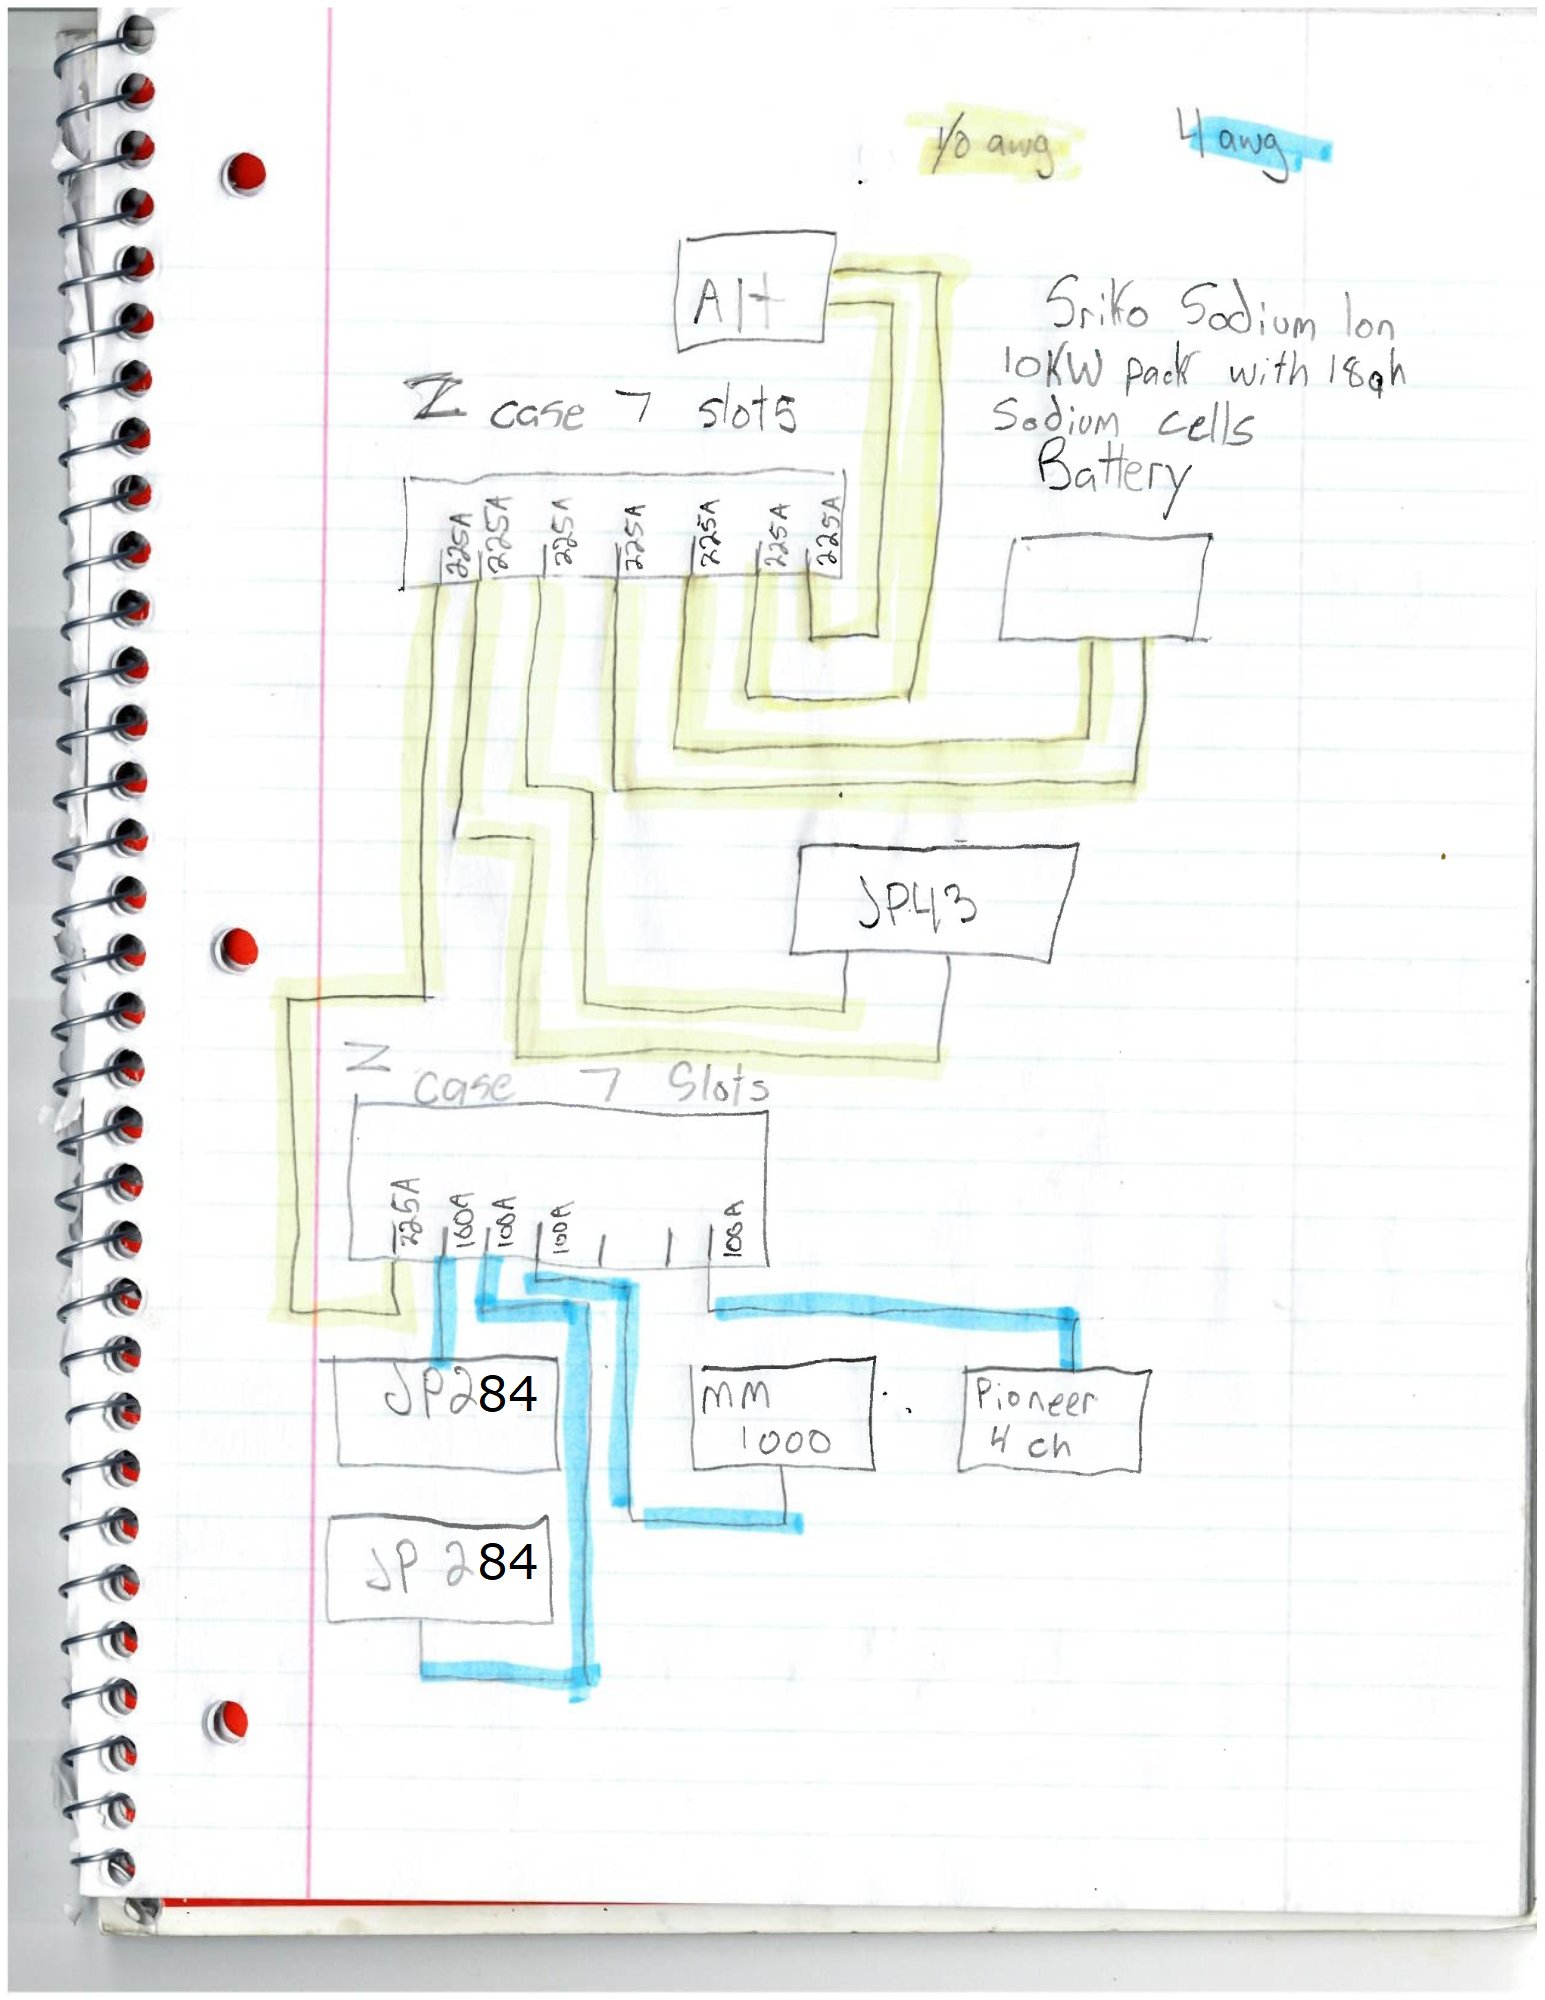 1/0 awg
4 awg
Alt
Sriko Sodium Ion
10KW pack with 18ah
Sodium cells
Battery
Z case 7 slots
225A
225A
225A
225A
225A
225A
225A
JP43
Z case 7 Slots
225A
100A
100A
100A
100A
JP284
MM
1000
Pioneer
4 ch
JP 284